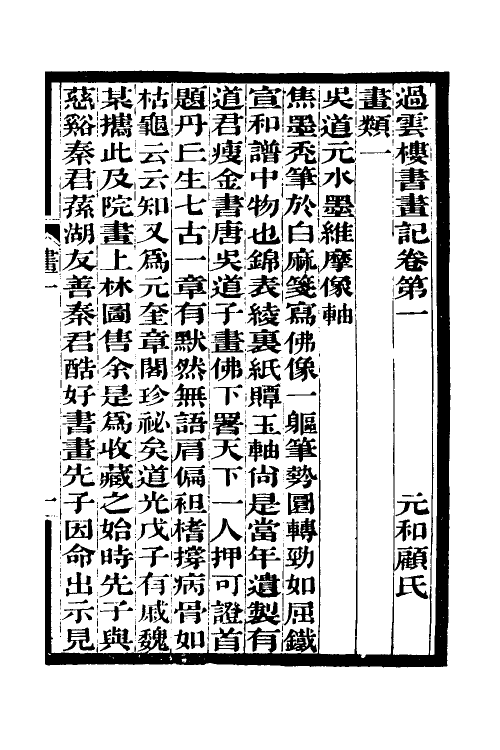 過雲樓書畫記卷第一　元和顧氏
畫類一
吳道元水墨維摩像軸
焦墨禿筆於白麻箋寫佛像一軀筆勢圓轉勁如屈鐵
宣和譜中物也錦表綾裏紙贉玉軸尙是當年遺製有
道君瘦金書唐吳道子畫佛下署天下一人押可證首
題丹丘生七古一章有默然無語肩偏袒楮撐病骨如
枯龜云云知又爲元奎章閣珍祕矣道光戊子有戚魏
某攜此及院畫上林圖售余是爲收藏之始時先子與
慈谿秦君蓀湖友善秦君酷好書畫先子因命出示見
畫一
一